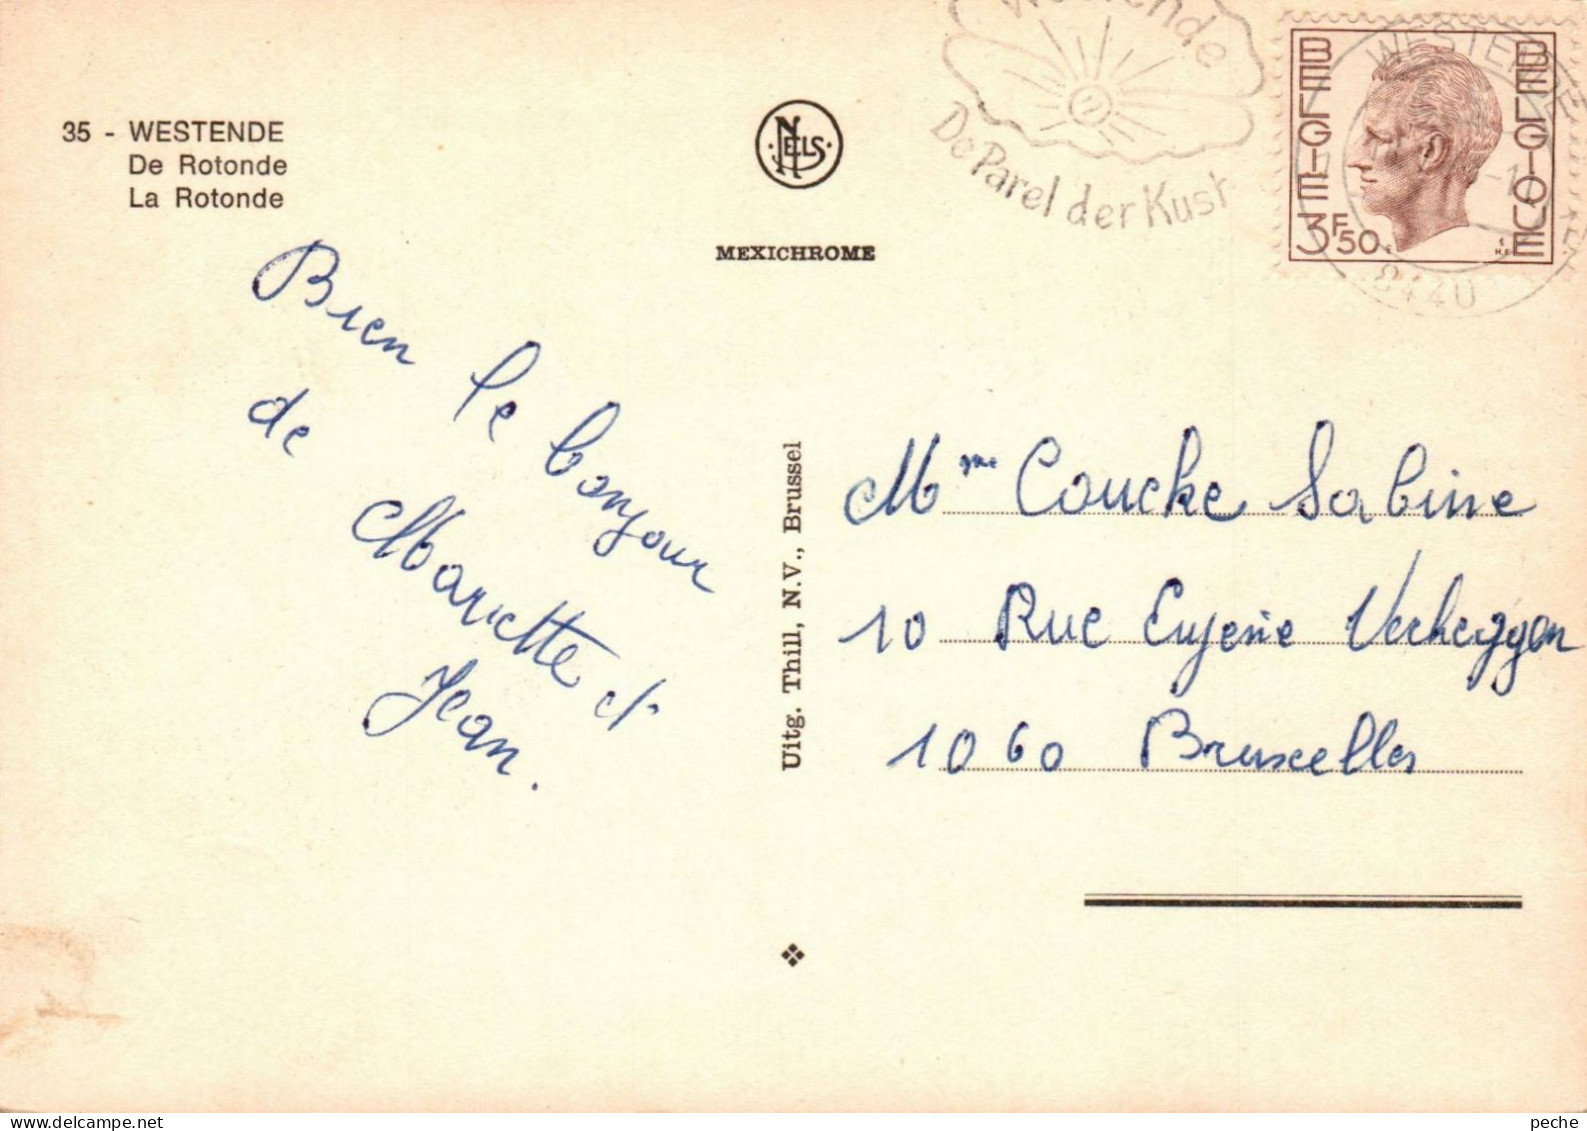 35 - WESTENDE
De Rotonde
La Rotonde
NELS
MEXICHROME
Westende
De Parel der Kust
BELGIE
BELGIQUE
3F50
WESTENDE
8440
Bien le bonjour
de Mariette et
Jean.
Uitg. Thill, N.V., Brussel
Mme Coucke Sabine
10 Rue Eugenie Verheggen
1060 Bruxelles
peche